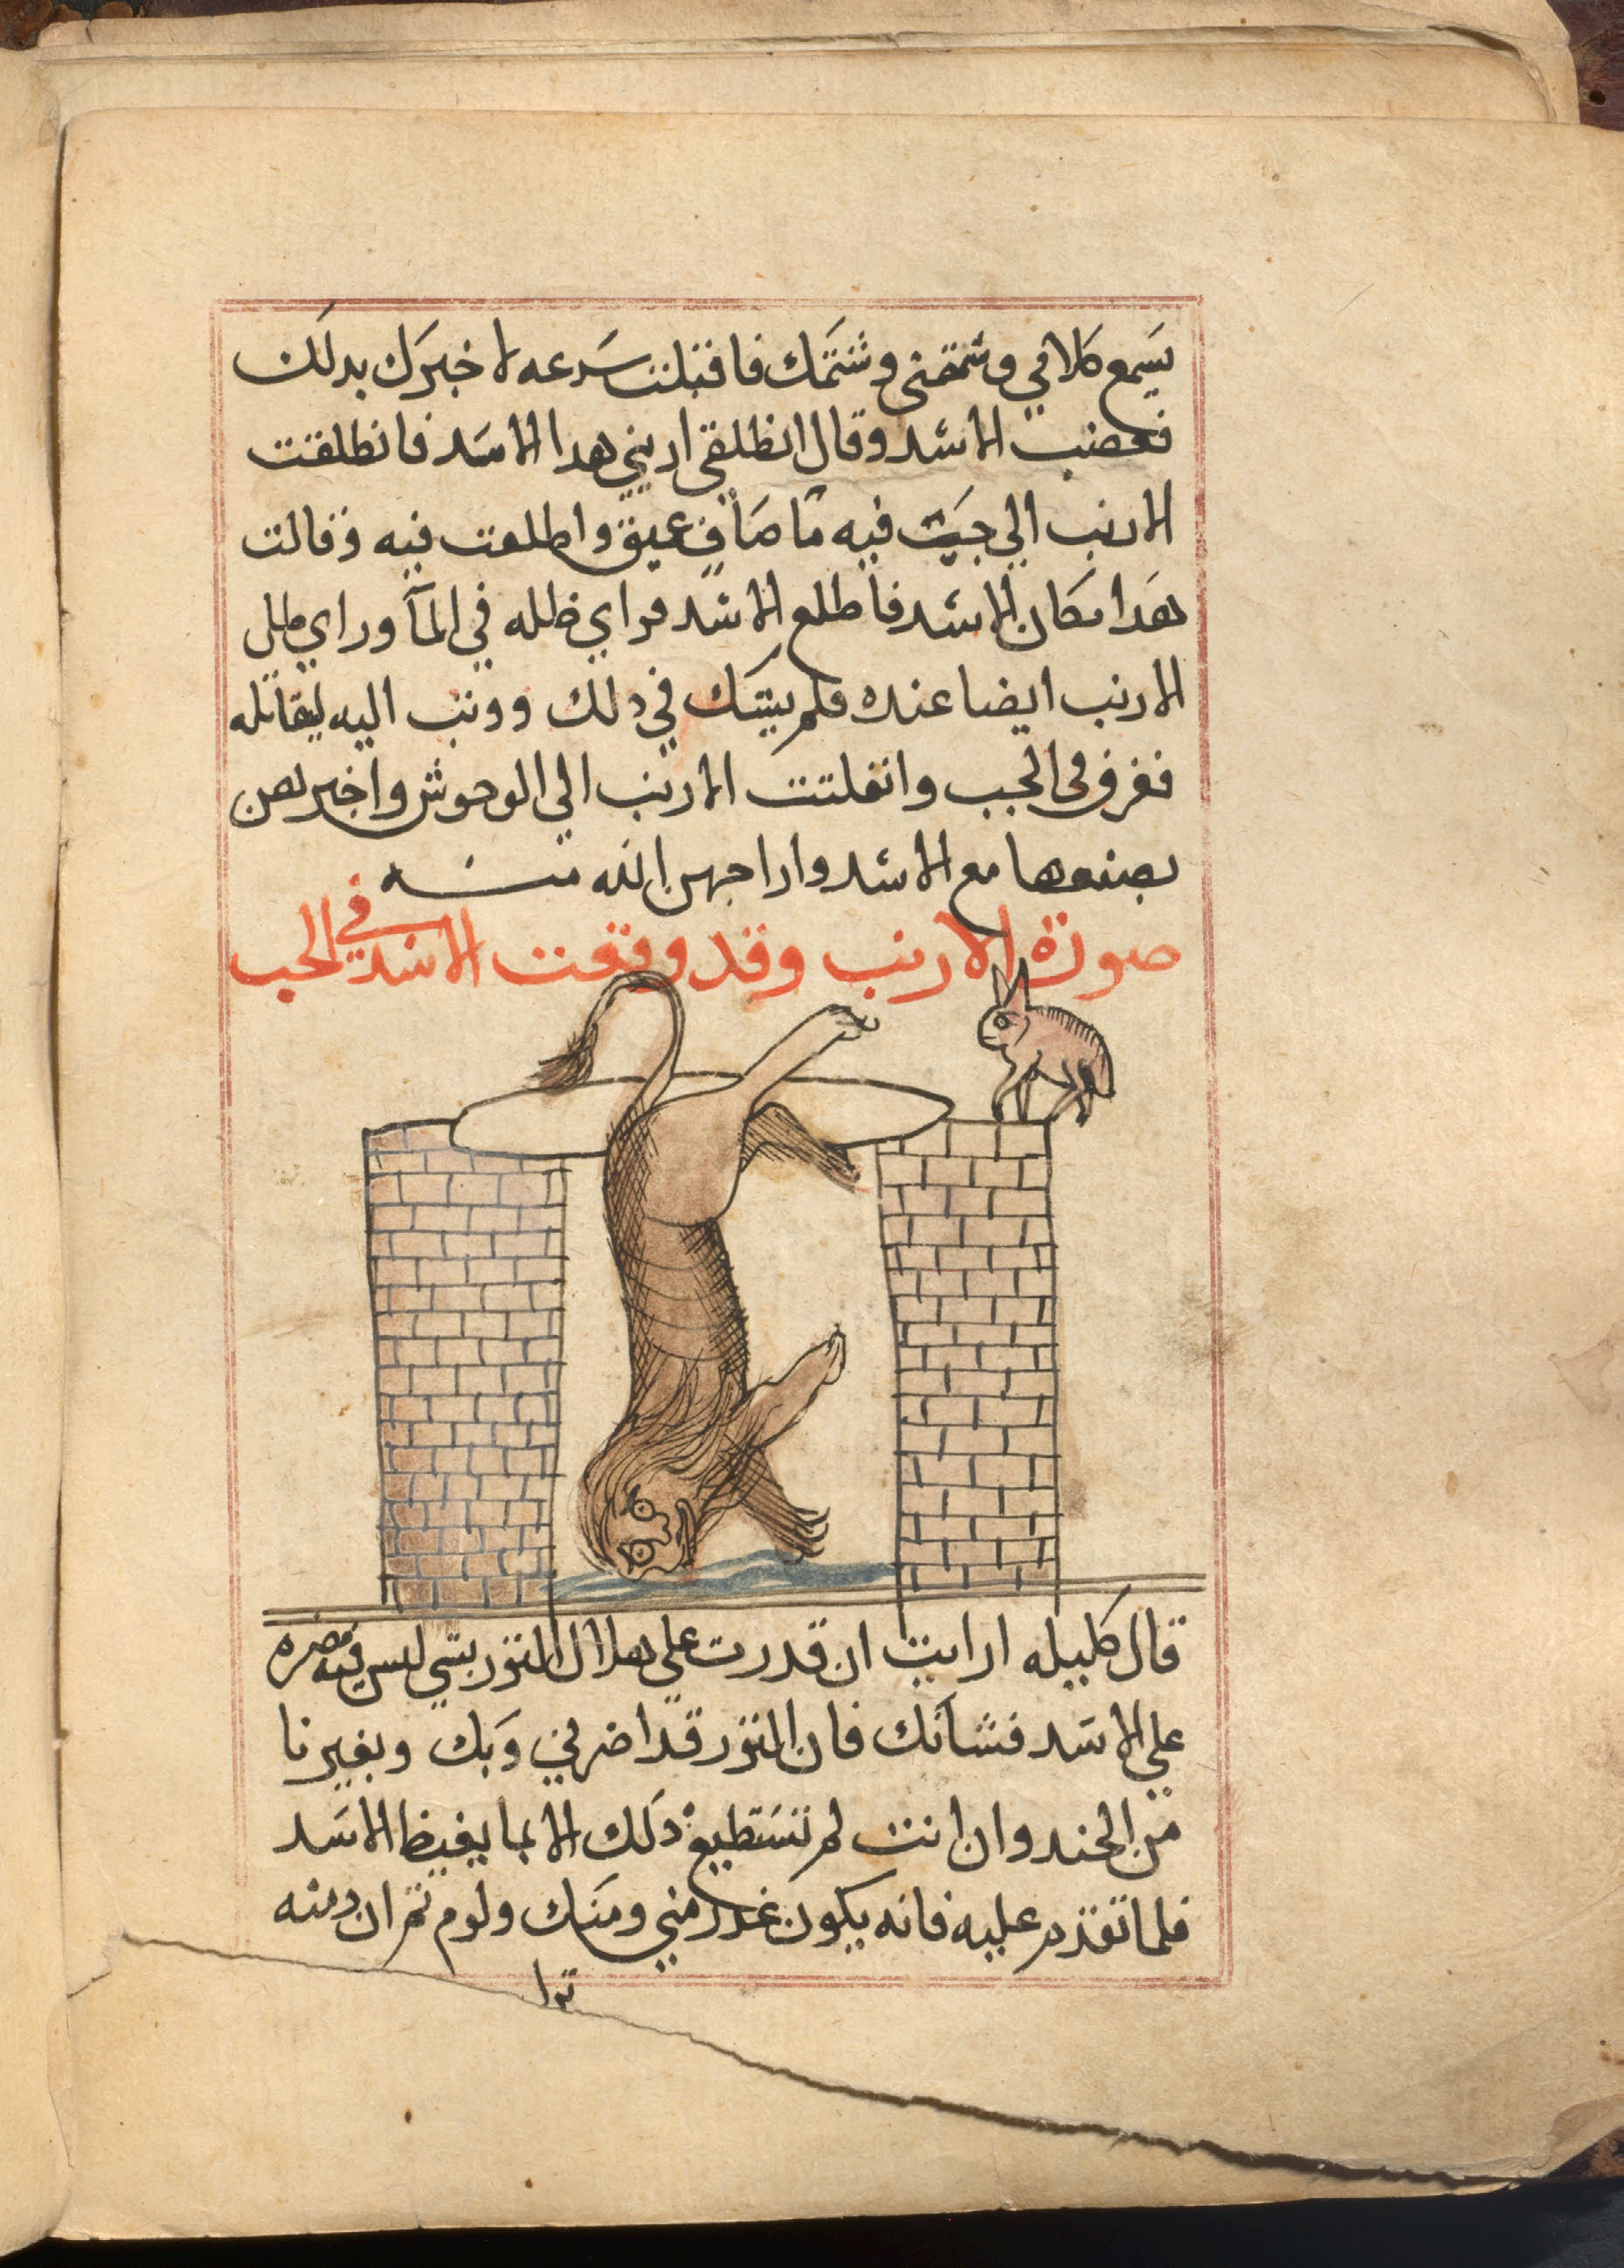 يسمع كلامي وشتمني وشتمك فاقبلت سرعه لاخبرك بدلك
فغضب الاسد وقال انطلقي اريني هدا الاسد فانطلقت
الارنب الي جب فيه ما صاف عميق واطلعت فيه وقالت
هدا مكان الاسد فاطلع الاسد فراي ظله في المآ وراي ظل
الارنب ايضا عنده فلم يشك في دلك ووثب اليه ليقاتله
فغرق في الجب وانفلتت الارنب الي الوحوش واخبرتهن
بصنعها مع الاسد واراحهن الله منه
صورة الارنب وقد وقعت الاسد في الجب
قال كليله ارايت ان قدرت علي هلاك الثور بشي ليس فيه مضره
علي الاسد فشانك فان الثور قد اضر بي وبك وبغيرنا
من الجند وان انت لم تستطيع دلك الا بما يغيظ الاسد
فلا تقدم عليه فانه يكون غدر مني ومنك ولوم ثم ان دمنه